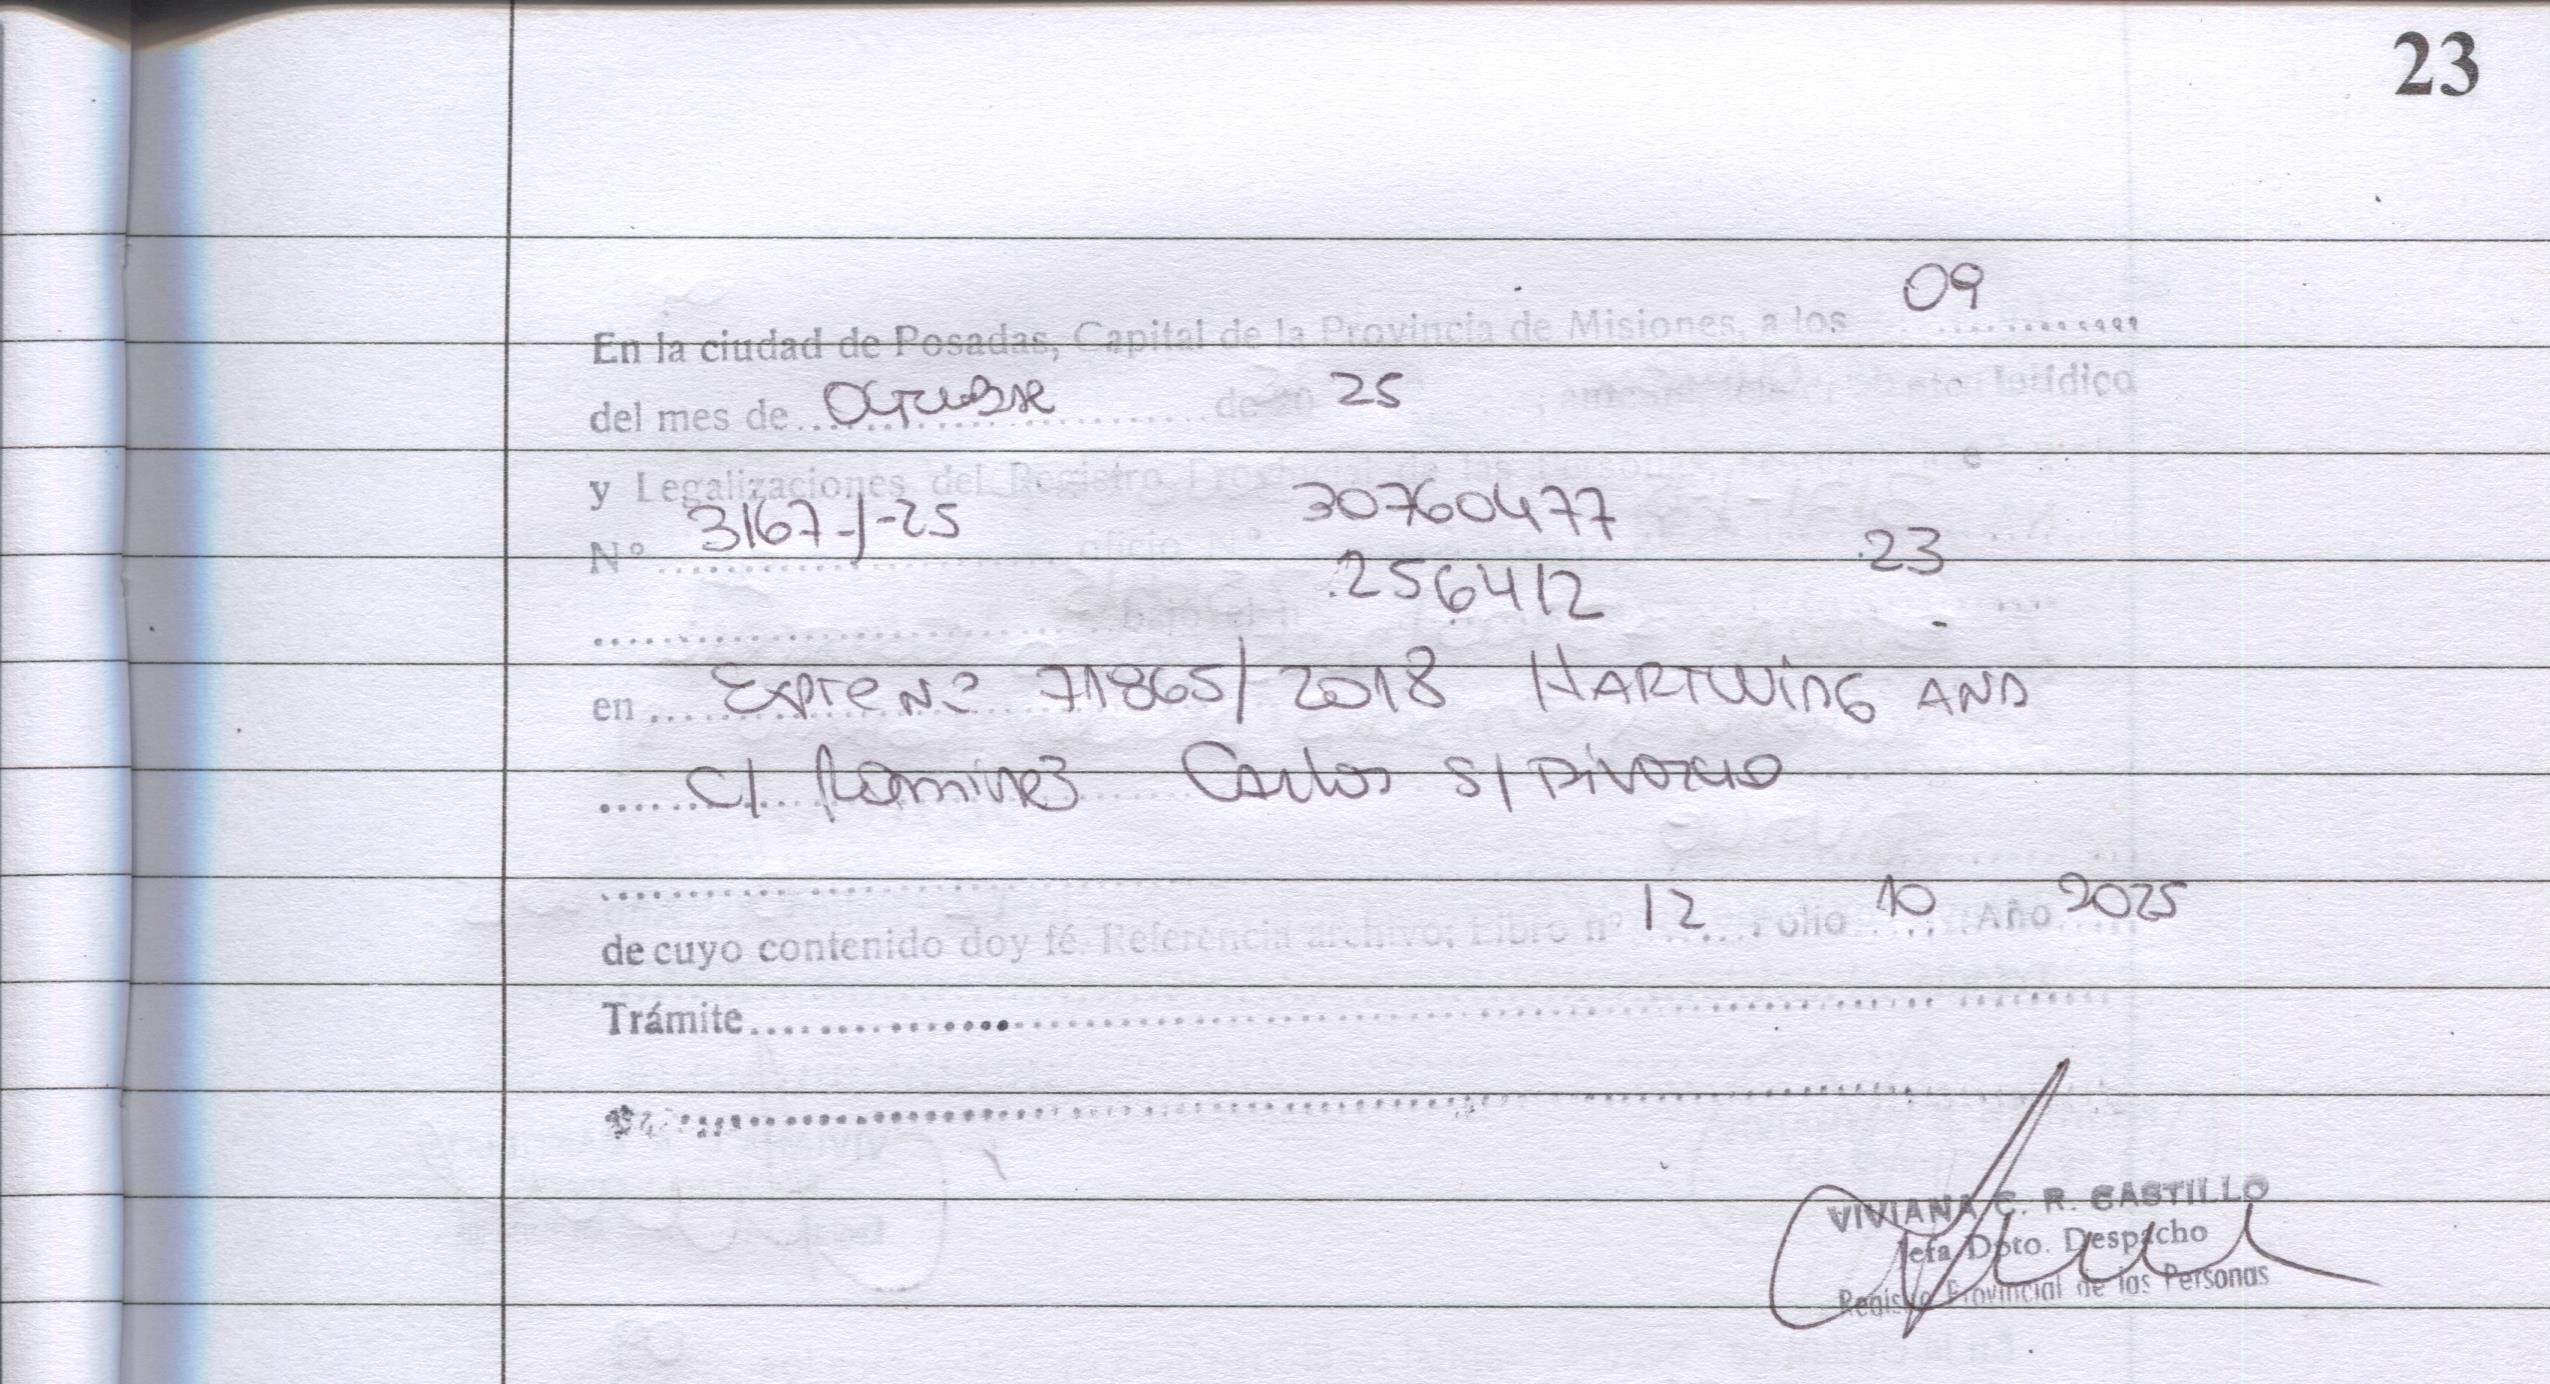 23
En la ciudad de Posadas, Capital de la Provincia de Misiones, a los 09
del mes de Octubre de 20 25 Jurídico
y Legalizaciones del Registro
Nº 3167-J-25 oficio nº 30760477 23
bajo el nº 256412
en Expte Nº 71865/2018 HARTWING ANA
c/ Ramirez Carlos S/ Divorcio
de cuyo contenido doy fé. Referencia archivo; Libro nº 12 Folio 10 Año 2025
Trámite
VIVIANA C. R. CASTILLO
Jefa Dpto. Despacho
Registro Provincial de las Personas